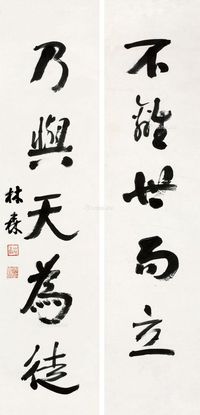 不離世而立
乃與天為徒
林森